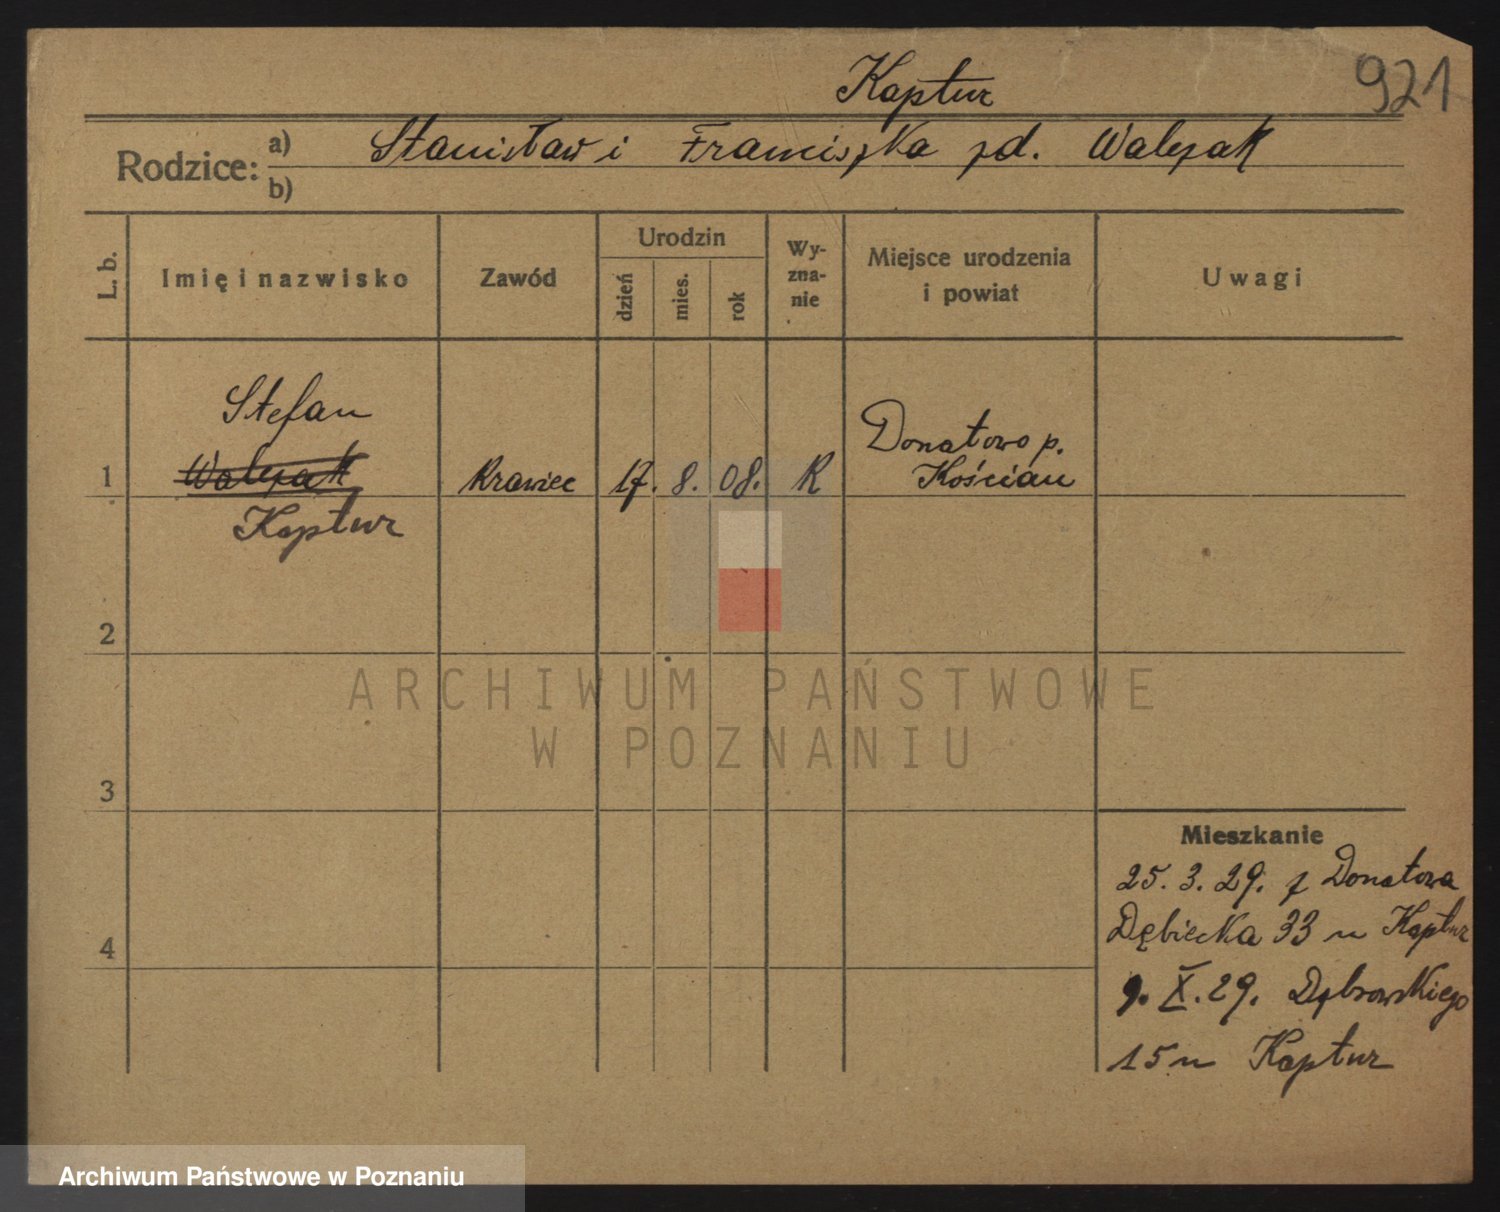 Kaptur
921
Rodzice:
a) Stanisław i Franciszka zd. Walczak
b)
L. b.
Imię i nazwisko
Zawód
Urodzin
dzień
mies.
rok
Wy-
zna-
nie
Miejsce urodzenia
i powiat
Uwagi
1
Stefan
Walczak
Kaptur
Krawiec
17. 8. 08.
R
Donatowo p.
Kościan
2
3
4
Mieszkanie
25. 3. 29. z Donatowa
Dębiecka 33 u Kaptur
9. X. 29. Dąbrowskiego
15 u Kaptur
ARCHIWUM PAŃSTWOWE
W POZNANIU
Archiwum Państwowe w Poznaniu